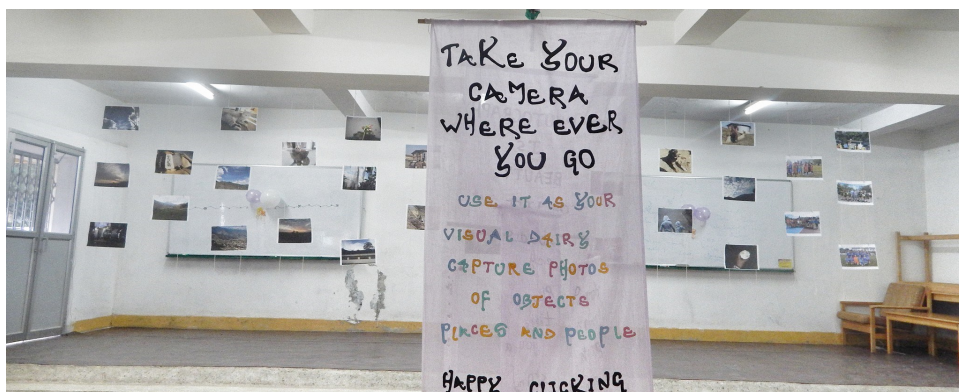 TAKE YOUR
CAMERA
WHERE EVER
YOU GO
USE IT AS YOUR
VISUAL DAIRY
CAPTURE PHOTOS
OF OBJECTS
PLACES AND PEOPLE
HAPPY CLICKING